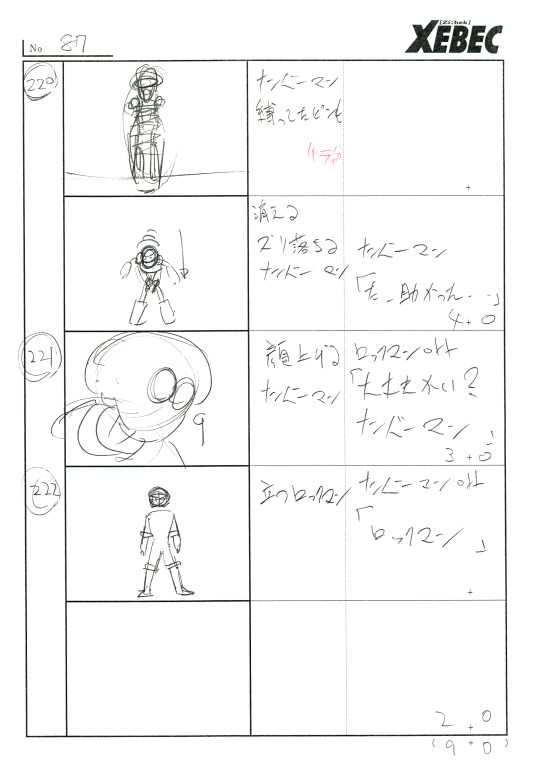 [Zi:bek]
XEBEC
No 87
220
ナンバーマン
縛ってたビンも
消える
ズリ落ちる
ナンバーマン
ナンバーマン
「た、助かった・・・」
4+0
221
顔上げる
ナンバーマン
ロックマンoff
「大丈夫かい?
ナンバーマン」
3+0
222
立つロックマン
ナンバーマンoff
「ロックマン」
2+0
(9+0)